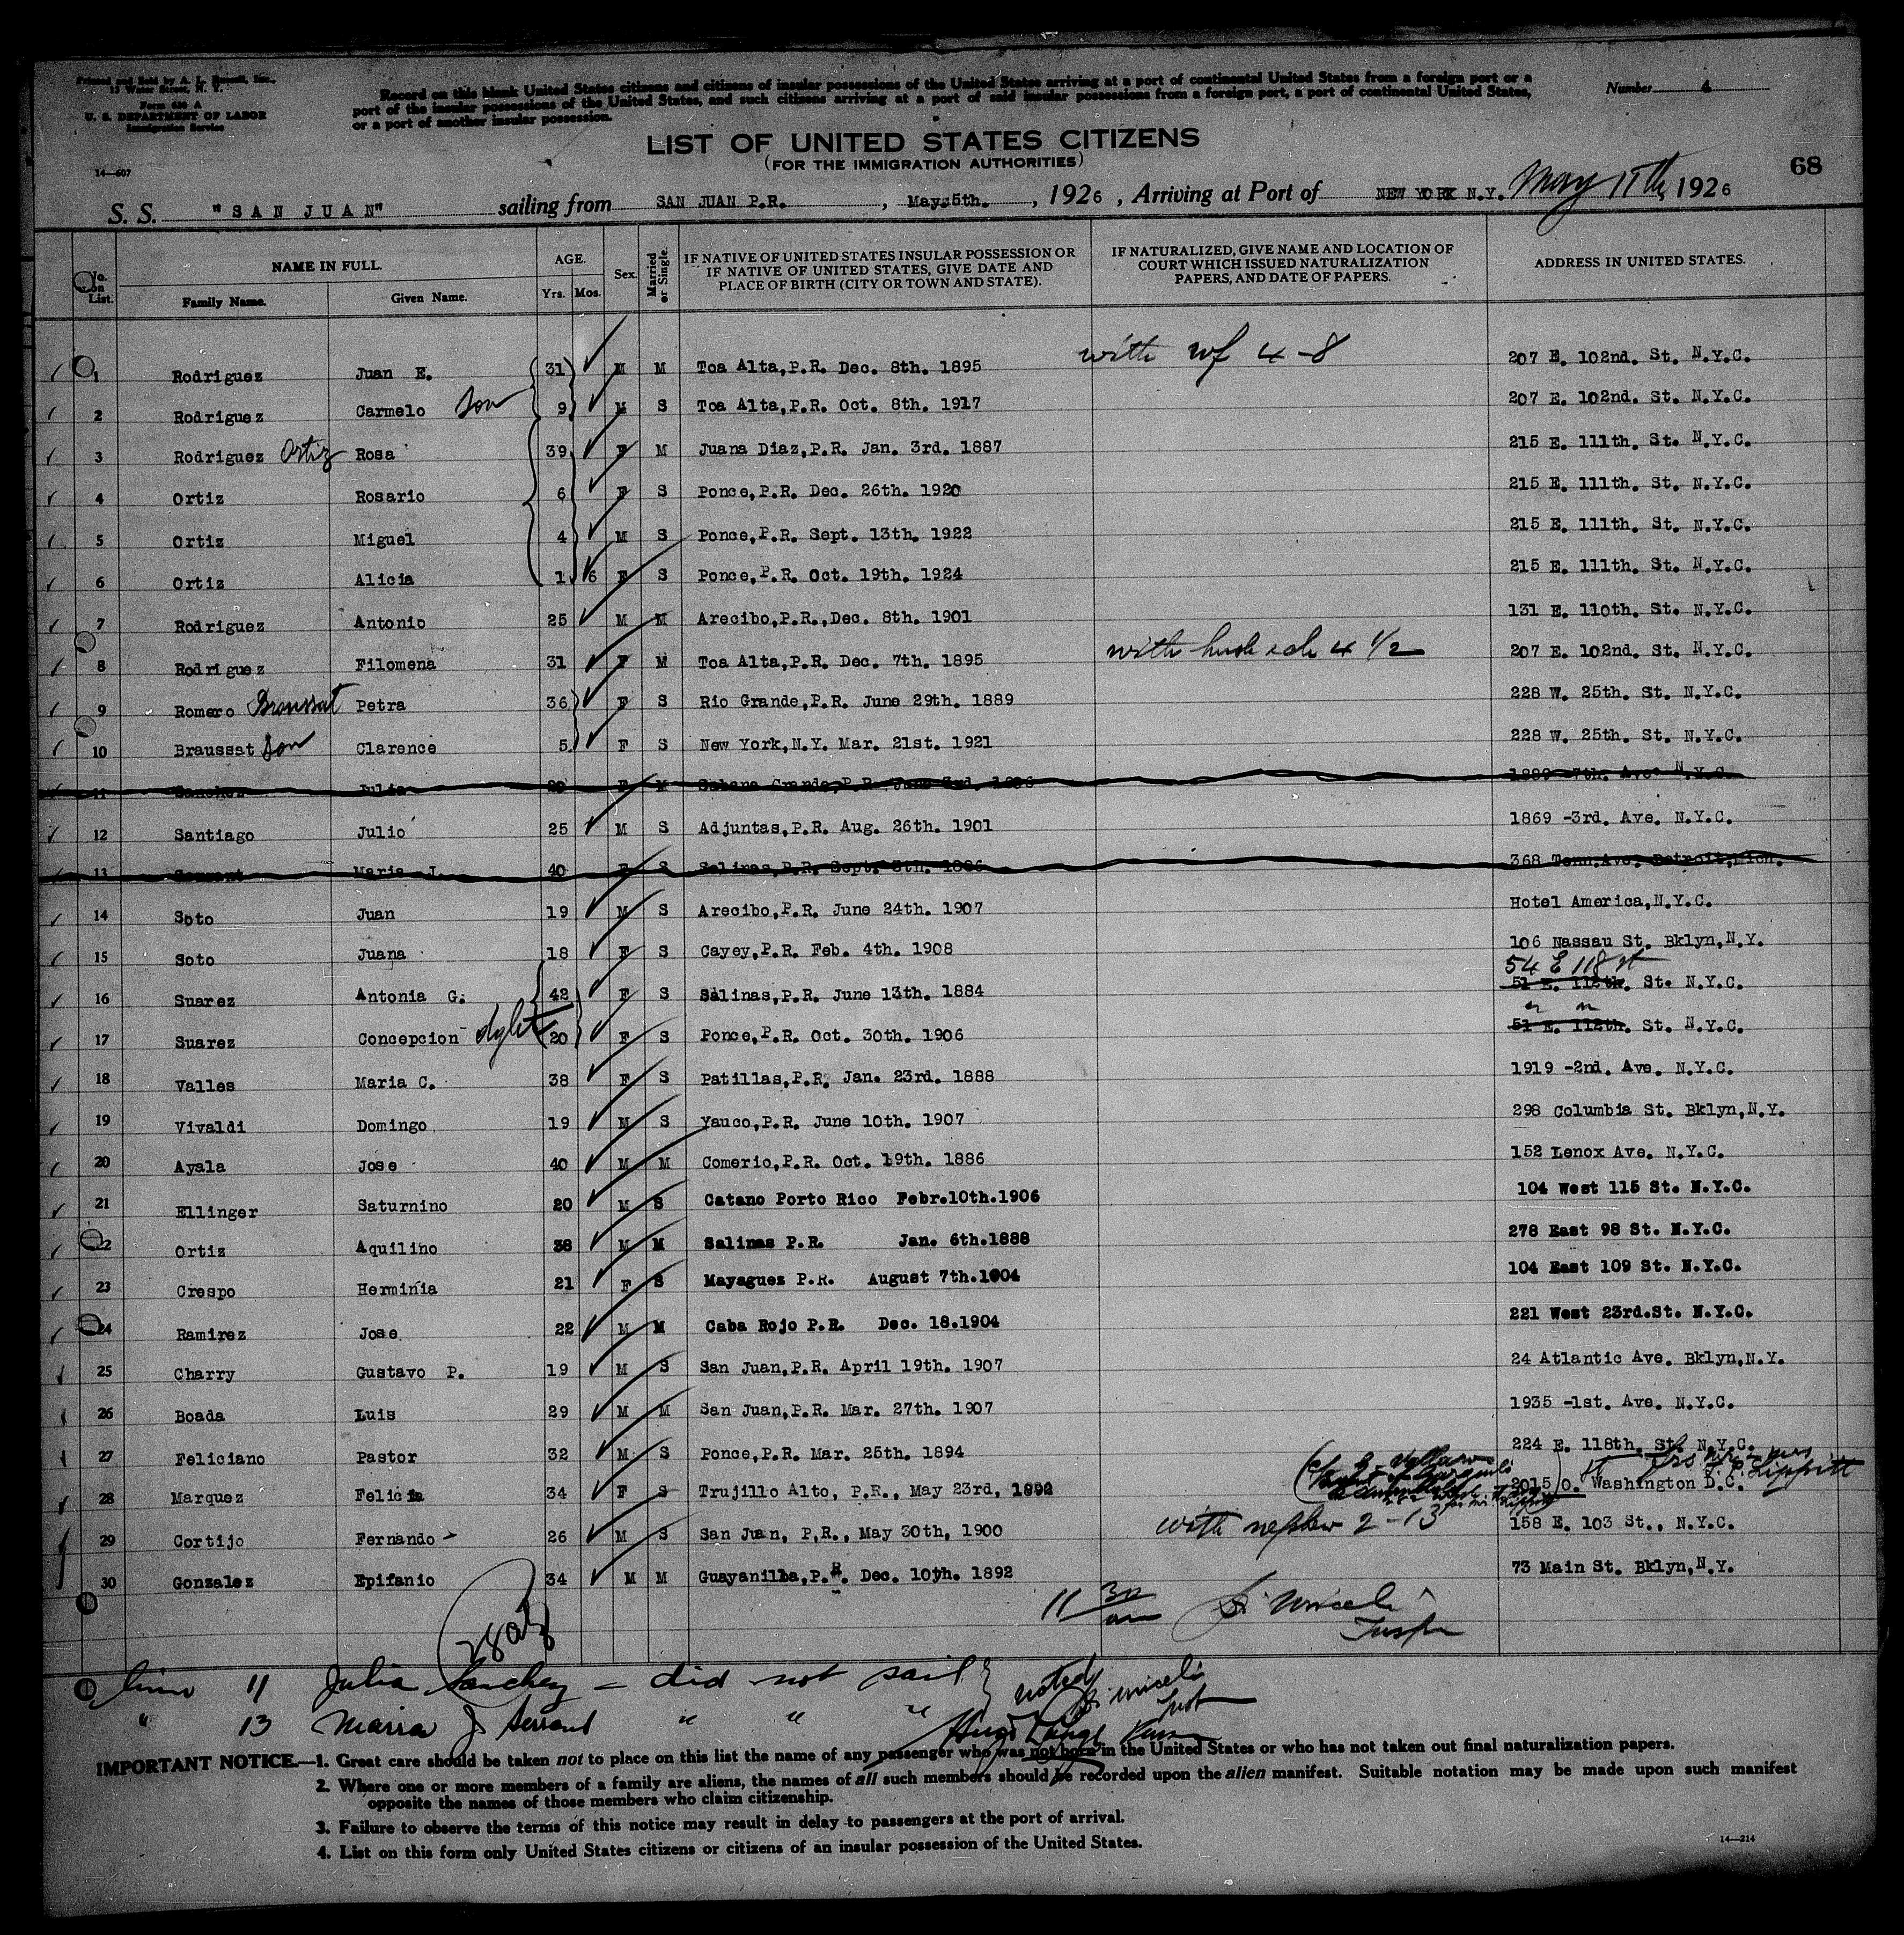 Printed and Sold by A. L. Russell, Inc.,
15 Water Street, N. Y.
Form 630 A
U. S. DEPARTMENT OF LABOR
Immigration Service
14—607
Record on this blank United States citizens and citizens of insular possessions of the United States arriving at a port of continental United States from a foreign port or a
port of the insular possessions of the United States, and such citizens arriving at a port of said insular possessions from a foreign port, a port of continental United States,
or a port of another insular possession.
Number 4
LIST OF UNITED STATES CITIZENS
(FOR THE IMMIGRATION AUTHORITIES)
68
S. S. "SAN JUAN" sailing from SAN JUAN P.R. , May 5th. , 1926 , Arriving at Port of NEW YORK N.Y. May 1926
No. on List. NAME IN FULL. Family Name. Given Name. AGE. Yrs. Mos. Sex. Married or Single. IF NATIVE OF UNITED STATES INSULAR POSSESSION OR IF NATIVE OF UNITED STATES, GIVE DATE AND PLACE OF BIRTH (CITY OR TOWN AND STATE). IF NATURALIZED, GIVE NAME AND LOCATION OF COURT WHICH ISSUED NATURALIZATION PAPERS, AND DATE OF PAPERS. ADDRESS IN UNITED STATES.
1 Rodriguez Juan E. 31 M M Toa Alta,P.R. Dec. 8th. 1895 with wf 4-8 207 E. 102nd. St. N.Y.C.
2 Rodriguez Carmelo son 9 M S Toa Alta,P.R. Oct. 8th. 1917 207 E. 102nd. St. N.Y.C.
3 Rodriguez Ortiz Rosa 39 F M Juana Diaz,P.R. Jan. 3rd. 1887 215 E. 111th. St. N.Y.C.
4 Ortiz Rosario 6 F S Ponce,P.R. Dec. 26th. 1920 215 E. 111th. St. N.Y.C.
5 Ortiz Miguel 4 M S Ponce,P.R. Sept. 13th. 1922 215 E. 111th. St. N.Y.C.
6 Ortiz Alicia 1 6 F S Ponce,P.R. Oct. 19th. 1924 215 E. 111th. St. N.Y.C.
7 Rodriguez Antonio 25 M M Arecibo,P.R.,Dec. 8th. 1901 131 E. 110th. St. N.Y.C.
8 Rodriguez Filomena 31 F M Toa Alta,P.R. Dec. 7th. 1895 with husb & ch 4 1/2 207 E. 102nd. St. N.Y.C.
9 Romero Braussat Petra 36 F S Rio Grande,P.R. June 29th. 1889 228 W. 25th. St. N.Y.C.
10 Braussat son Clarence 5 F S New York,N.Y. Mar. 21st. 1921 228 W. 25th. St. N.Y.C.
11 Sanchez Julia F M Sabana Grande,P.R. June 1889 7th. Ave. N.Y.C.
12 Santiago Julio 25 M S Adjuntas,P.R. Aug. 26th. 1901 1869 -3rd. Ave. N.Y.C.
13 Maria J. 40 F S Salinas,P.R. Sept. 1886 368 Tenn.Ave. Detroit,Mich.
14 Soto Juan 19 M S Arecibo,P.R. June 24th. 1907 Hotel America,N.Y.C.
15 Soto Juana 18 F S Cayey,P.R. Feb. 4th. 1908 106 Nassau St. Bklyn,N.Y.
54 E 118 st
16 Suarez Antonia G. 42 F S Salinas,P.R. June 13th. 1884 51 E. 112th. St. N.Y.C.
17 Suarez Concepcion 20 F S Ponce,P.R. Oct. 30th. 1906 51 E. 112th. St. N.Y.C.
18 Valles Maria C. 38 F S Patillas,P.R. Jan. 23rd. 1888 1919 -2nd. Ave. N.Y.C.
19 Vivaldi Domingo 19 M S Yauco,P.R. June 10th. 1907 298 Columbia St. Bklyn,N.Y.
20 Ayala Jose 40 M M Comerio,P.R. Oct. 19th. 1886 152 Lenox Ave. N.Y.C.
21 Ellinger Saturnino 20 M S Catano Porto Rico Febr.10th.1906 104 West 115 St. N.Y.C.
22 Ortiz Aquilino 38 M M Salinas P.R. Jan. 6th.1888 278 East 98 St. N.Y.C.
23 Crespo Herminia 21 F S Mayaguez P.R. August 7th.1904 104 East 109 St. N.Y.C.
24 Ramirez Jose 22 M M Caba Rojo P.R. Dec. 18.1904 221 West 23rd.St. N.Y.C.
25 Charry Gustavo P. 19 M S San Juan,P.R. April 19th. 1907 24 Atlantic Ave. Bklyn,N.Y.
26 Boada Luis 29 M M San Juan,P.R. Mar. 27th. 1907 1935 -1st. Ave. N.Y.C.
27 Feliciano Pastor 32 M S Ponce,P.R. Mar. 25th. 1894 224 E. 118th. St. N.Y.C.
28 Marquez Felicia 34 F S Trujillo Alto, P.R., May 23rd, 1892 2015 O. Washington D.C. Lippitt
29 Cortijo Fernando 26 M S San Juan, P.R., May 30th, 1900 with nephew 2-13 158 E. 103 St., N.Y.C.
30 Gonzalez Epifanio 34 M M Guayanilla,P.R. Dec. 10th. 1892 73 Main St. Bklyn,N.Y.
11 30 am
Insp
line 11 Julia Sanchez - did not sail noted
" 13 Maria J Serrant " " "
IMPORTANT NOTICE.—1. Great care should be taken not to place on this list the name of any passenger who was not born in the United States or who has not taken out final naturalization papers.
2. Where one or more members of a family are aliens, the names of all such members should be recorded upon the alien manifest. Suitable notation may be made upon such manifest
opposite the names of those members who claim citizenship.
3. Failure to observe the terms of this notice may result in delay to passengers at the port of arrival.
4. List on this form only United States citizens or citizens of an insular possession of the United States.
14—214